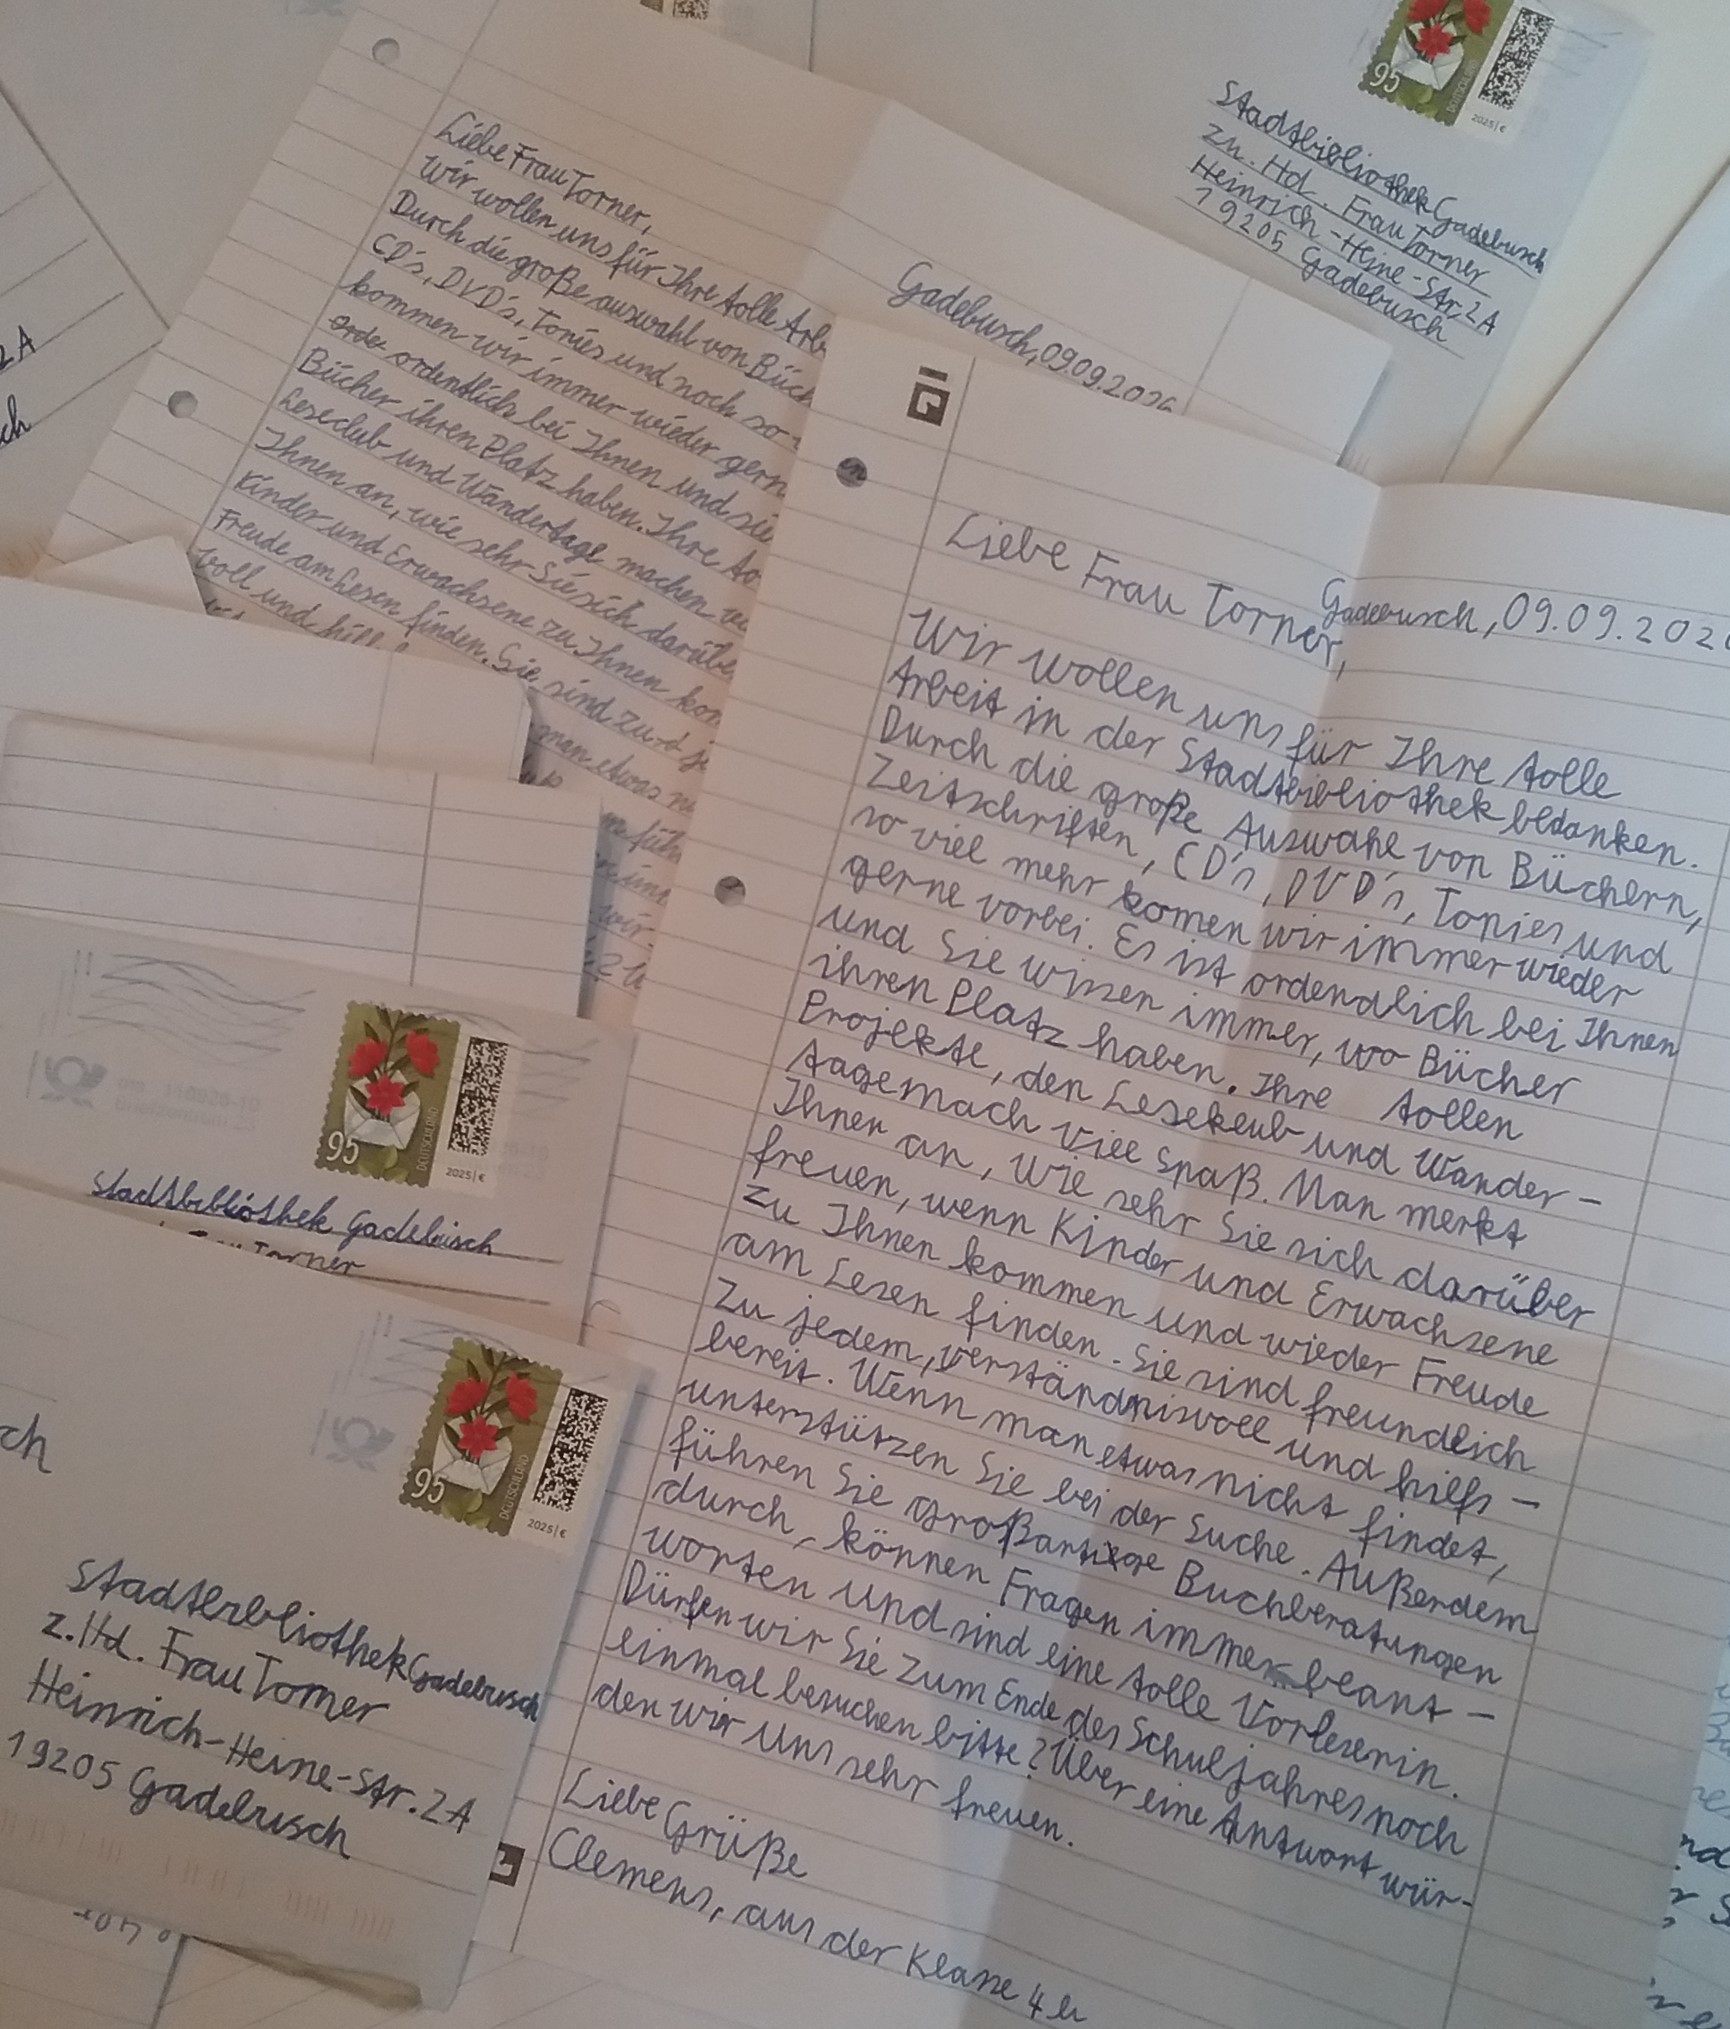 Stadtbibliothek Gadebusch
zu. Hd. Frau Torner
Heinrich-Heine-Str. 2A
19205 Gadebusch
95
DEUTSCHLAND
2025|€
Gadebusch, 09.09.2026
Liebe Frau Torner,
Wir wollen uns für Ihre tolle Arb
Durch die große auswahl von Büch
CD's, DVD's, Tonies und noch so v
kommen wir immer wieder gern
ordentlich bei Ihnen und sie
Bücher ihren Platz haben. Ihre to
Leseclub und Wandertage machen
Ihnen an, wie sehr Sie sich darübe
Kinder und Erwachsene zu Ihnen kom
Freude am Lesen finden. Sie sind zu
voll und hilf
man etwas
führ
wir
2A
ch
Gadebusch, 09.09.202
Liebe Frau Torner,
Wir wollen uns für Ihre tolle
Arbeit in der Stadtbibliothek bedanken.
Durch die große Auswahl von Büchern,
Zeitschriften, CD's, DVD's, Tonies und
so viel mehr komen wir immer wieder
gerne vorbei. Es ist ordendlich bei Ihnen
und Sie wissen immer, wo Bücher
ihren Platz haben. Ihre tollen
Projekte, den Leseklub und Wander-
tagemach viel Spaß. Man merkt
Ihnen an, wie sehr Sie sich darüber
freuen, wenn Kinder und Erwachsene
zu Ihnen kommen und wieder Freude
am Lesen finden. Sie sind freundlich
zu jedem, verständnisvoll und hilfs-
bereit. Wenn man etwas nicht findet,
unterstützen Sie bei der Suche. Außerdem
führen Sie großartige Buchberatungen
durch, können Fragen immer beant-
worten und sind eine tolle Vorleserin.
Dürfen wir Sie zum Ende des Schuljahres noch
einmal besuchen bitte? Über eine Antwort wür-
den wir uns sehr freuen.
Liebe Grüße
Clemens, aus der Klasse 4b
95
DEUTSCHLAND
2025|€
Stadtbibliothek Gadebusch
Frau Torner
95
DEUTSCHLAND
2025|€
ch
Stadtbibliothek Gadebusch
z. Hd. Frau Torner
Heinrich-Heine-Str. 2A
19205 Gadebusch